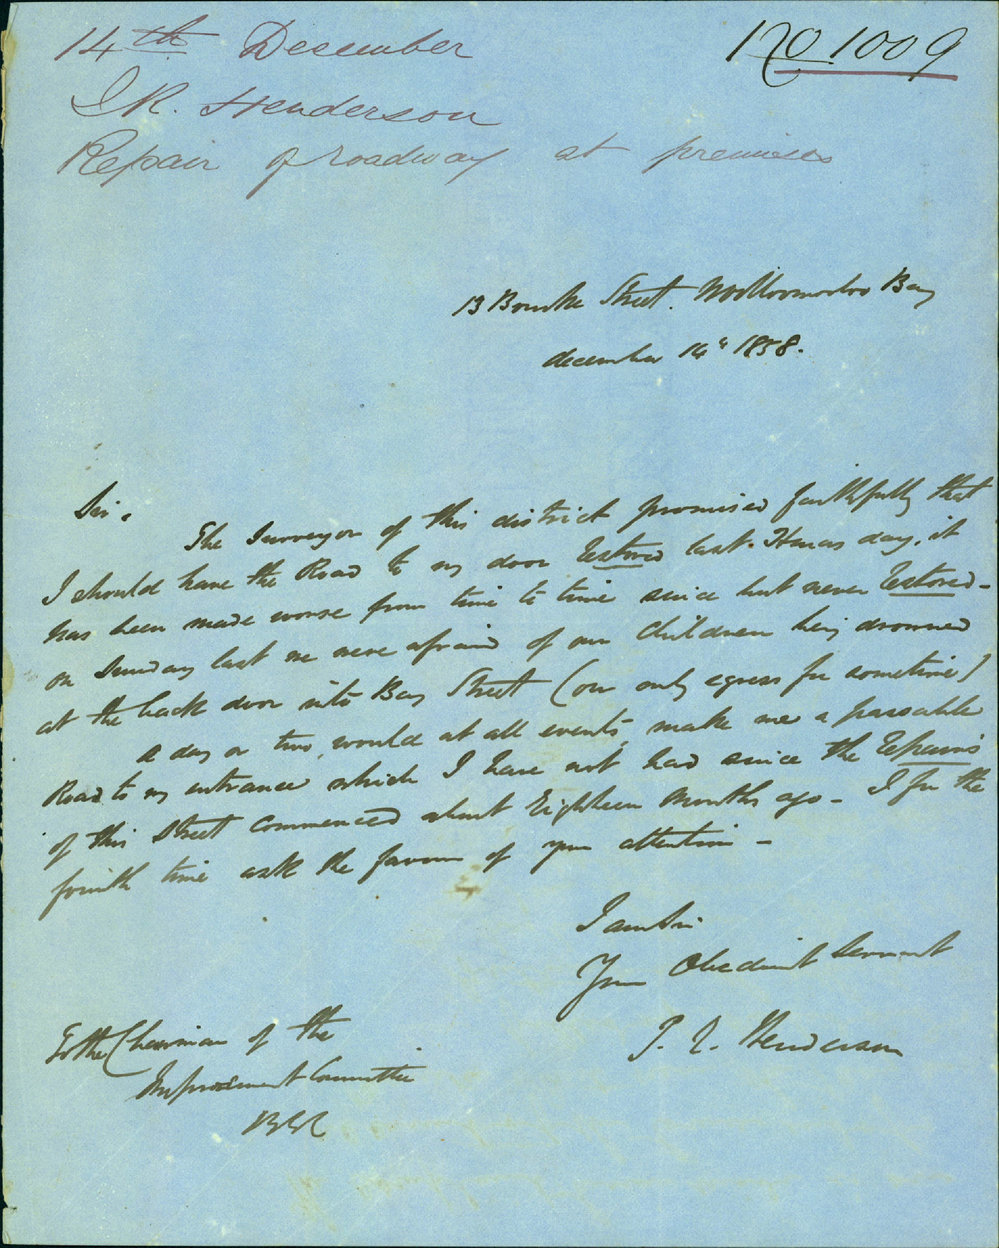 14th December
No. 1009
J R. Henderson
Repair of roadway at premises
13 Bourke Street. Woolloomooloo Bay
december 14" 1858.
Sir,
The Surveyor of this district promised faithfully that
I should have the Road to my door restored last Xmas day, it
has been made worse from time to time since but never restored -
on Sunday last we were afraid of our Children being drowned
at the back door into Bay Street (our only egress for sometime)
A day or two, would at all events, make me a passable
Road to my entrance which I have not had since the repairs
of this Street Commenced about Eighteen Months ago - I for the
fourth time ask the favour of your attention -
I am Sir
Your Obedient Servant
Henderson
To the Chairman of the
Improvement Committee